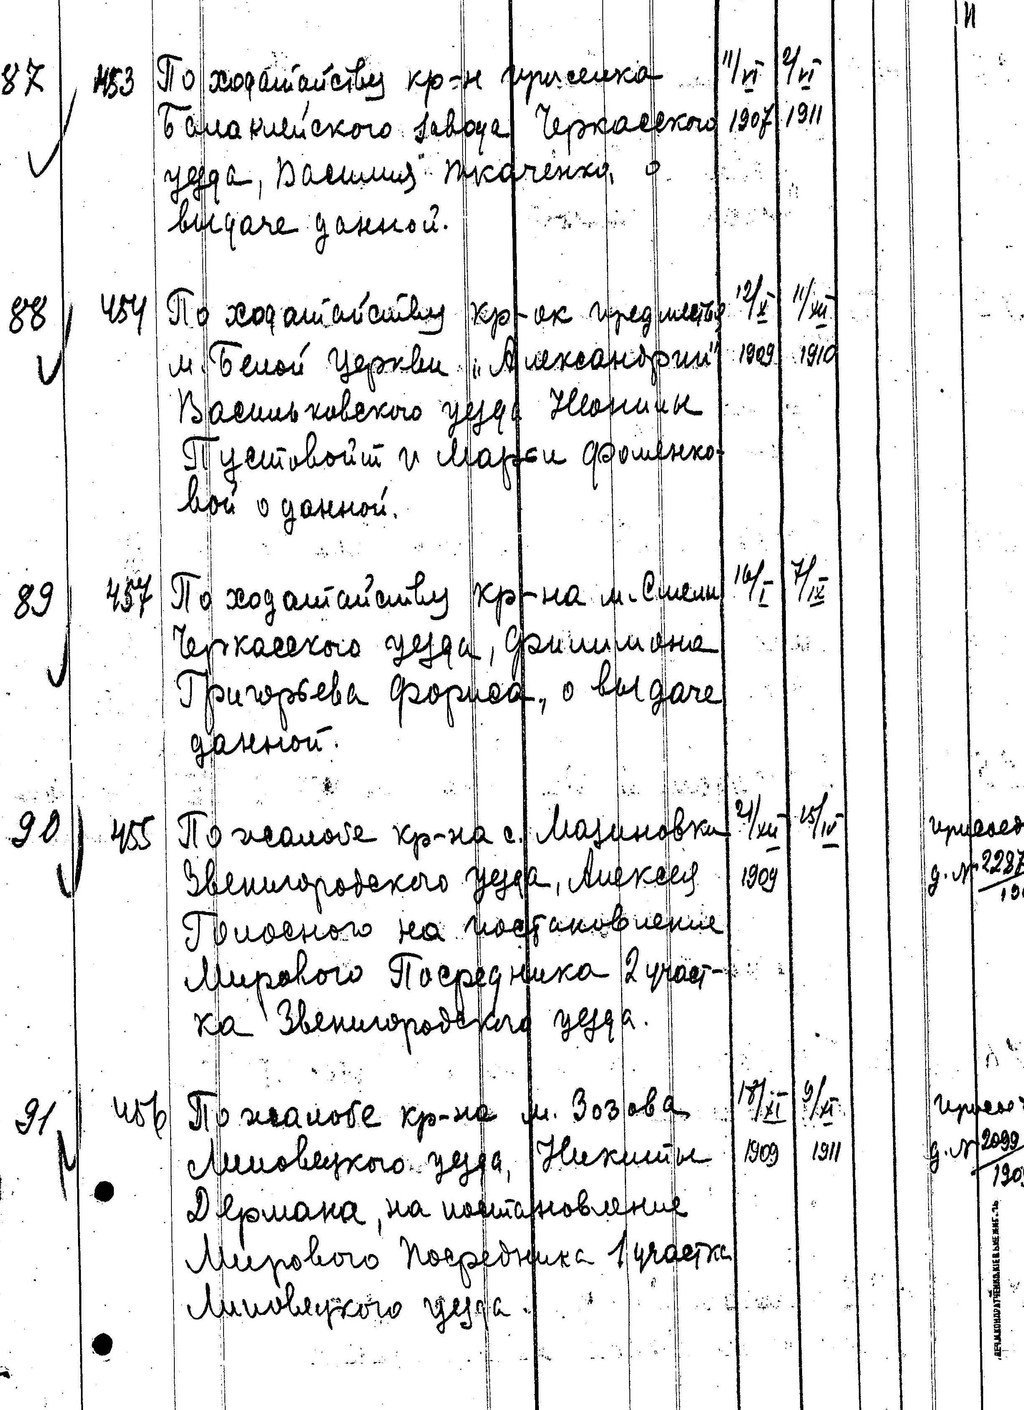 11
87 453 По ходатайству кр-н приселка 11/VI 2/VI
Балаклейского завода Черкасского 1907 1911
уезда, Василия Ткаченко, о
выдаче данной.
88 454 По ходатайству кр-ок предместья 12/X 11/XII
м. Белой Церкви „Александрии" 1909 1910
Васильковского уезда Неонилы
Пустовойт и Марфы Фоменко-
вой о данной.
89 457 По ходатайству кр-на м. Смелы 16/I 7/IX
Черкасского уезда, Филимона
Григорьева Фориса, о выдаче
данной.
90 455 По жалобе кр-на с. Мазиновки 21/XII 15/IV присоед
Звенигородского уезда, Алексея 1909 д. № 2287
Голосного на постановление
Мирового Посредника 2 участ-
ка Звенигородского уезда.
91 456 По жалобе кр-на м. Зозова 18/XI 9/XI присо
Липовецкого уезда, Никиты 1909 1911 д. № 2099
Дермана, на постановление
Мирового Посредника 1 участка
Липовецкого уезда.